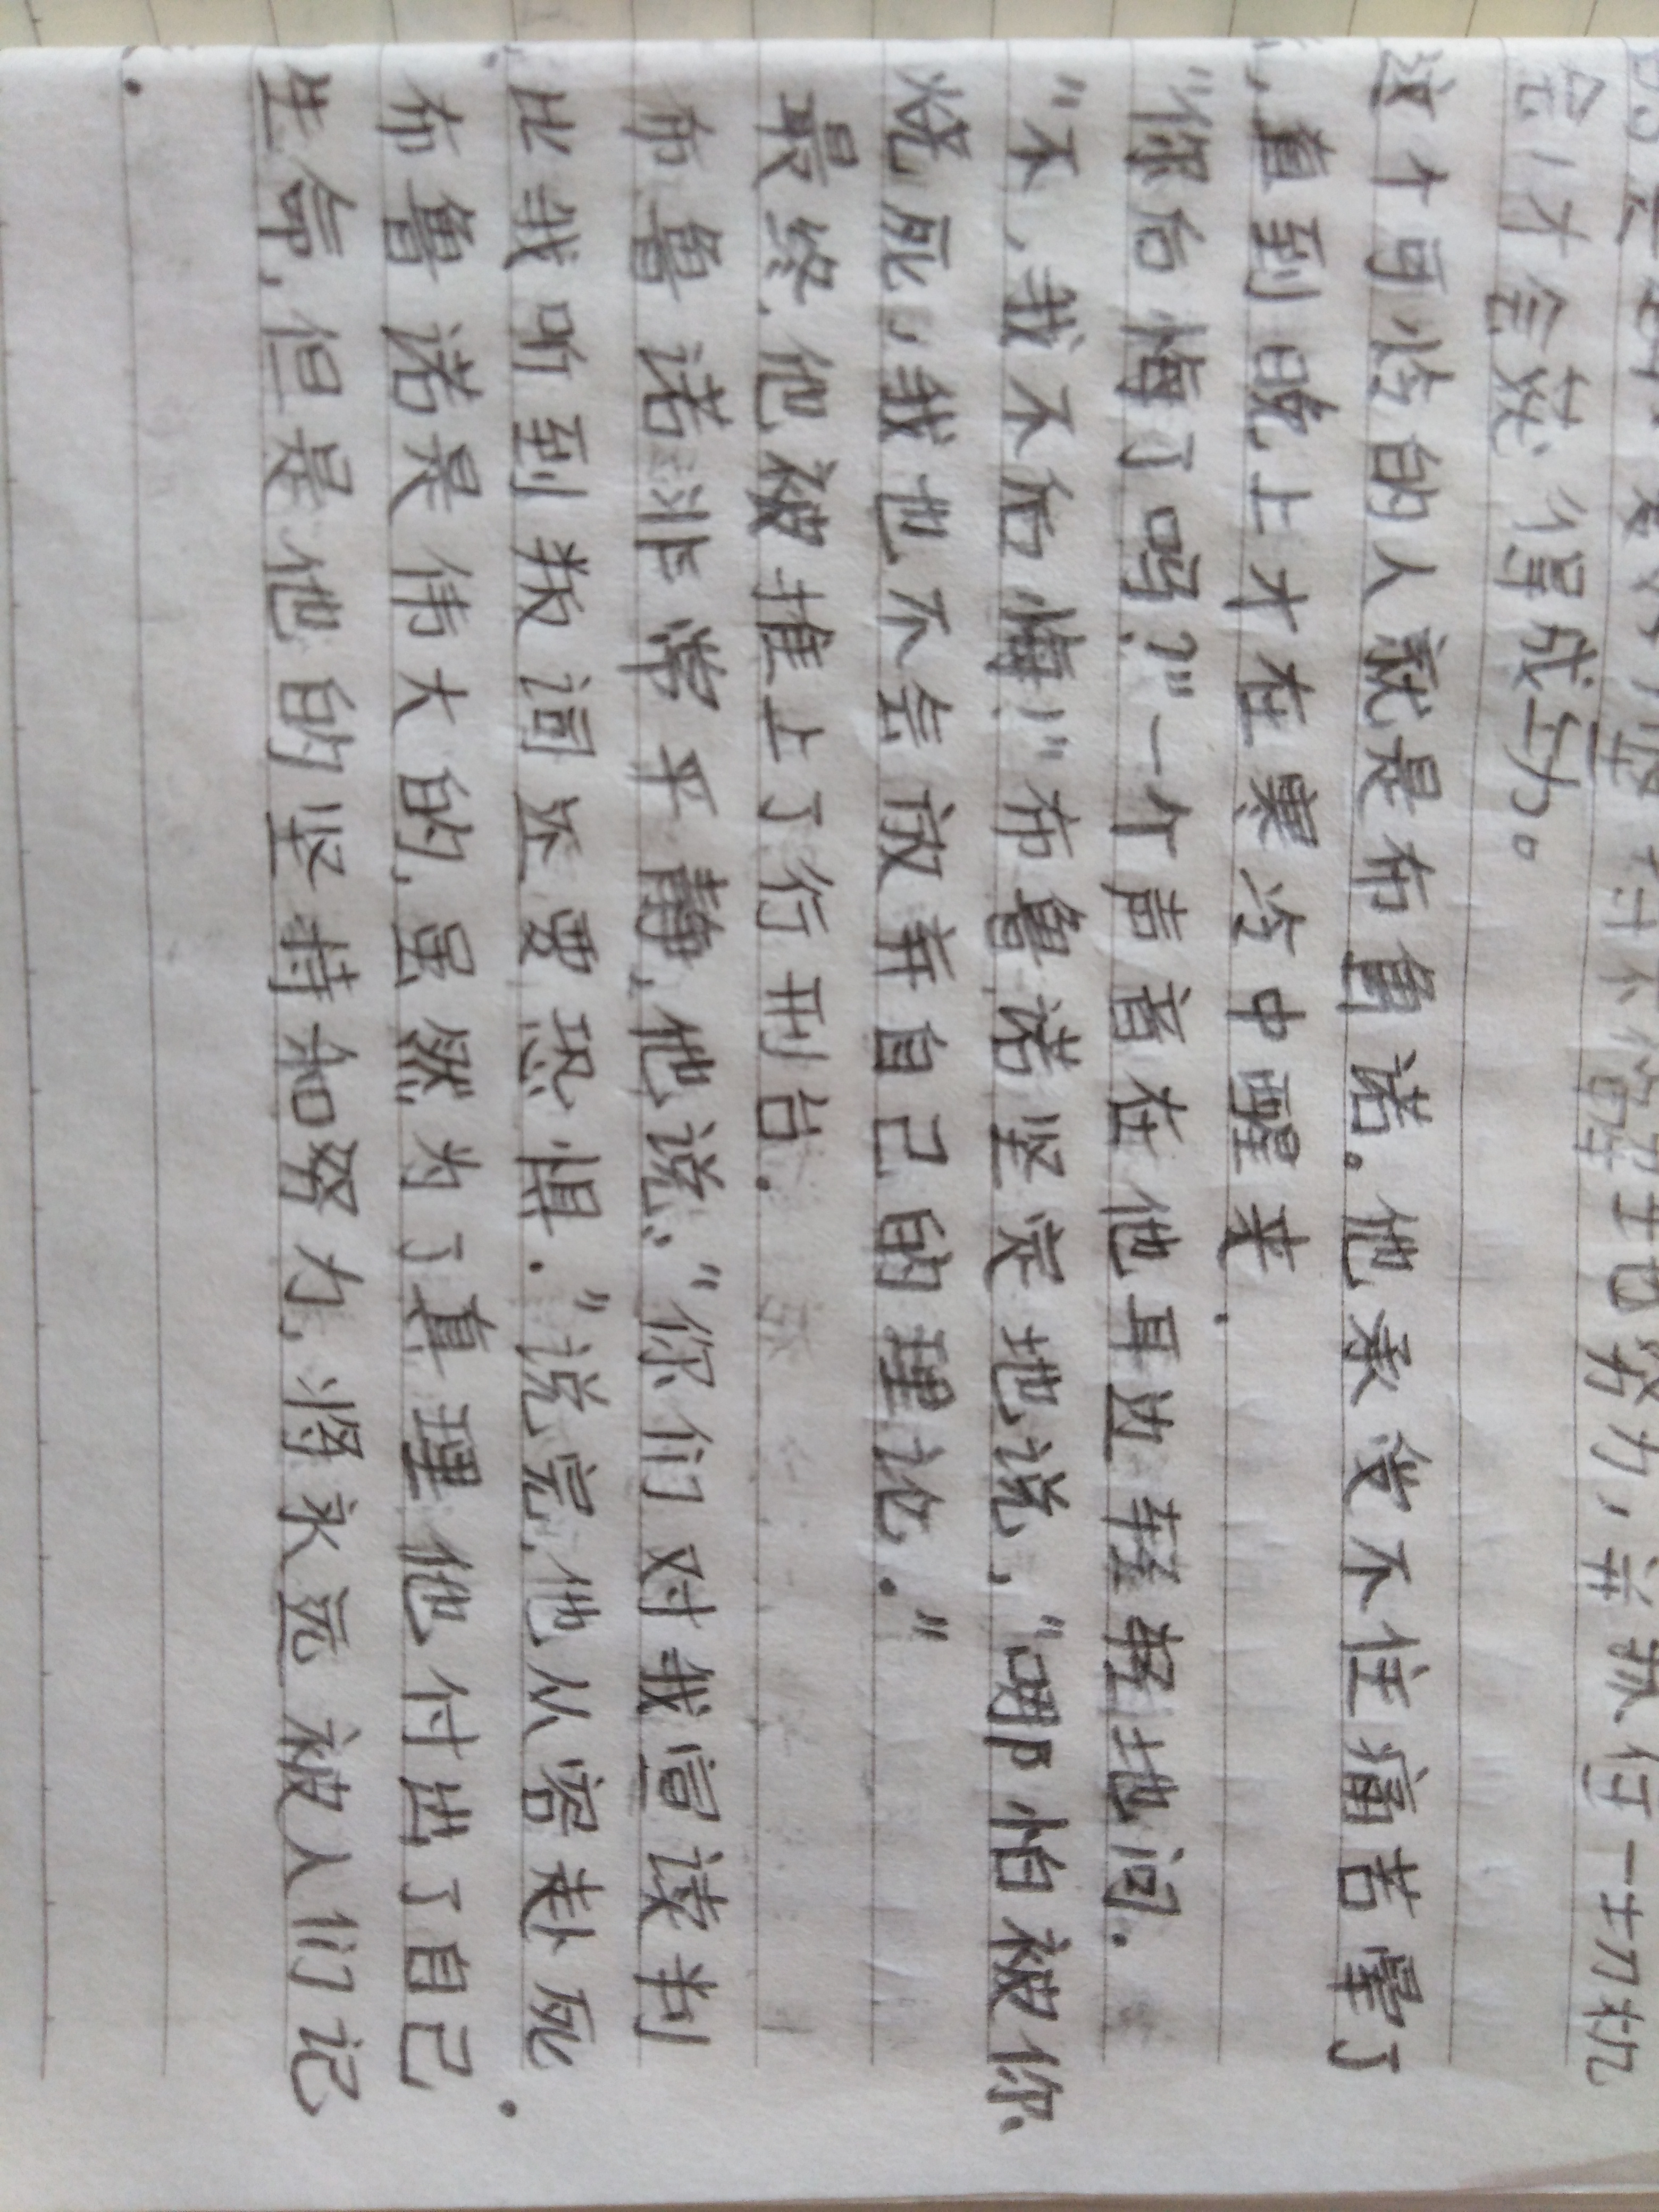 会,才会获得成功。
这个可怜的人就是布鲁诺。他承受不住痛苦晕了
,直到晚上才在寒冷中醒来.
“你后悔了吗?”一个声音在他耳边轻轻地问.
“不,我不后悔!”布鲁诺坚定地说,“哪怕被你
烧死,我也不会放弃自己的理论.”
最终,他被推上了行刑台.
布鲁诺非常平静,他说:“你们对我宣读判
比我听到判词还要恐惧.”说完,他从容赴死.
布鲁诺是伟大的,虽然为了真理他付出了自己
生命,但是他的坚持和努力,将永远被人们记
.